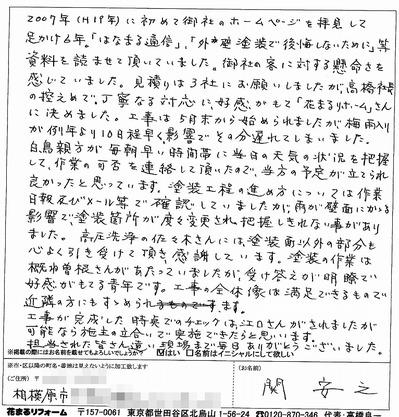 2007年(H19年)に初めて御社のホームページを拝見して
足かけ6年。「はなまる通信」、「外壁塗装で後悔しないために」等
資料を読ませて頂いていました。御社の客に対する懸命さを
感じていました。見積りは3社にお願いしましたが高橋社長
の控えめで、丁寧なる対応に、好感がもて「花まるリホーム」さん
に決めました。工事は5月末から始められましたが梅雨入り
が例年より10日程早く影響でその分遅れてしまいました。
白鳥親方が毎朝早い時間帯に当日の天気の状況を把握
して、作業の可否を連絡して頂いたので、当方の予定が立てられ
良かったと思っています。塗装工程の進め方については作業
日報及びメール等で確認していましたが、雨が壁面にかかる
影響で塗装箇所が度々変更され把握しきれない事があり
ました。高圧洗浄の佐々木さんには、塗装面以外の部分も
心よく引き受けて頂き感謝しています。塗装の作業は
概ね曽根さんがあたっていましたが、受け答えが明瞭で
好感がもてる青年です。工事の全体像は満足できるもので
近隣の方にもすゝめられます。
工事が完成した時点でのチェックは、エロさんがされましたが
可能なら施主の立合いで実施できたらと思います。
担当された皆さん遠い現場まで毎日ありがとうございました。
※掲載の際にはお名前を載せてもよろしいでしょうか? ☑はい □名前はイニシャルにして欲しい
※市・区以降の町名・番地は見えないように加工致します
(ご住所) 〒 (お名前)
相模原市 関 安之
花まるリフォーム 〒157-0061 東京都世田谷区北烏山1-56-24 ☎0120-870-346 代表:高橋良一